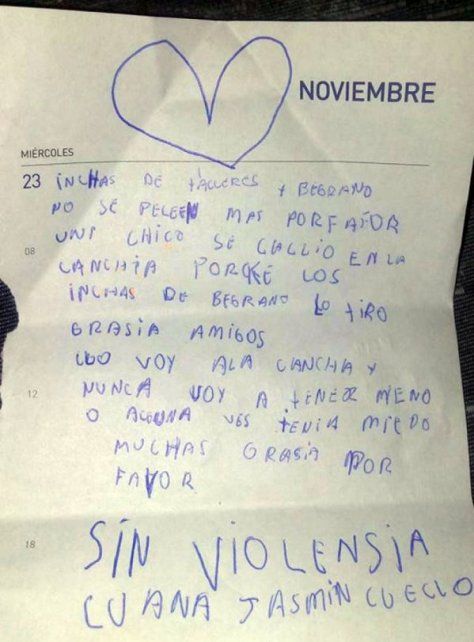 NOVIEMBRE
MIÉRCOLES
23 INCHAS DE TACLERES Y BEGRANO
NO SE PELEEN MAS PORFAFOR
08 UNI CHICO SE CALLIO EN LA
CANCHIA PORKE LOS
INCHAS DE BEGRANO LO TIRO
GRASIA AMIGOS
VOY ALA CANCHA Y
12 NUNCA VOY A TENER MENO
O ALGUNA VES TENIA MIEDO
MUCHAS GRASIA POR
FAVOR
18 SIN VIOLENSIA
LUANA JASMIN CUELLO